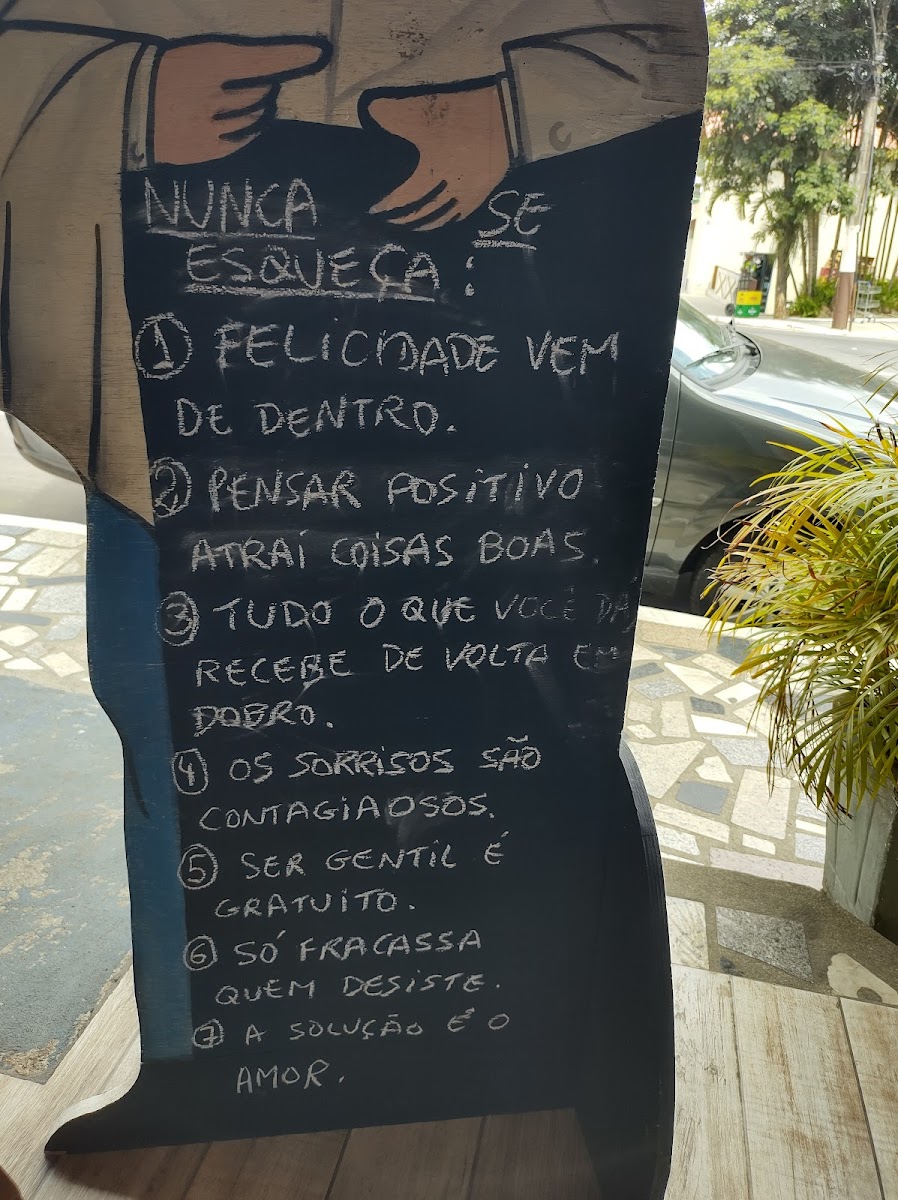 NUNCA SE
ESQUEÇA :
1 FELICIDADE VEM
DE DENTRO.
2 PENSAR POSITIVO
ATRAI COISAS BOAS.
3 TUDO O QUE VOCÊ DÁ,
RECEBE DE VOLTA EM
DOBRO.
4 OS SORRISOS SÃO
CONTAGIAOSOS.
5 SER GENTIL É
GRATUITO.
6 SÓ FRACASSA
QUEM DESISTE.
7 A SOLUÇÃO É O
AMOR.